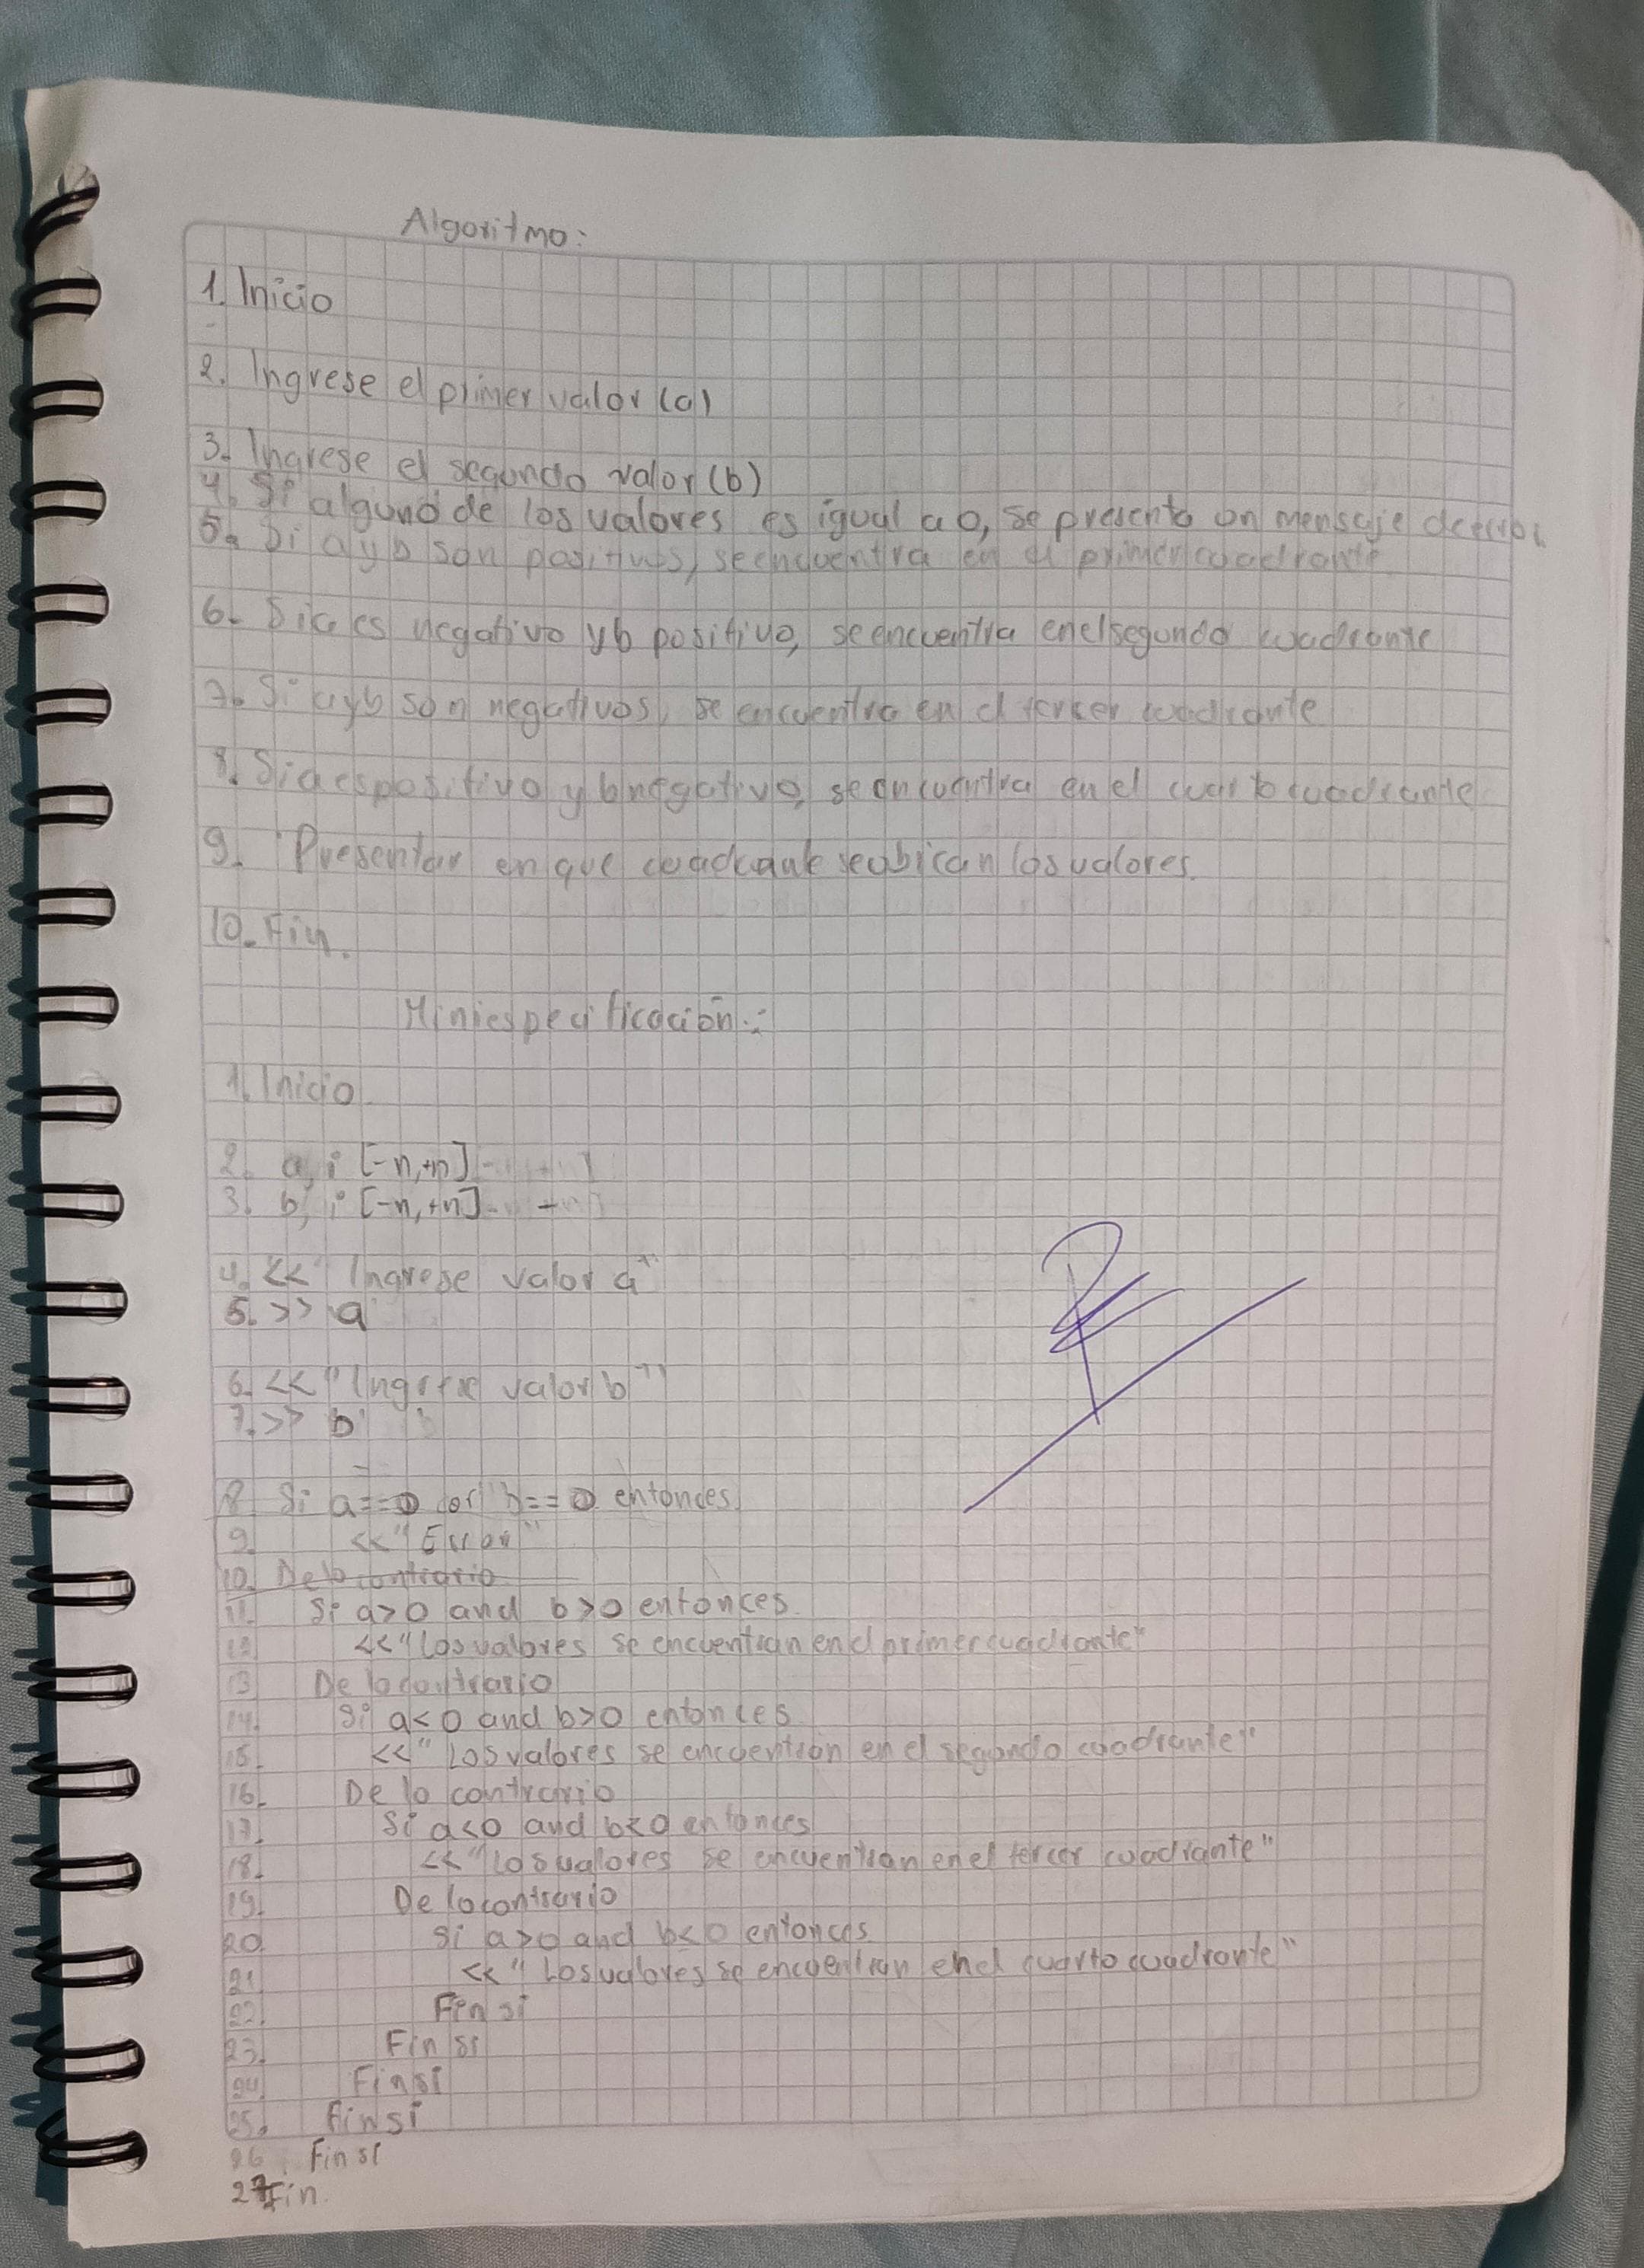 Algoritmo:
1. Inicio
2. Ingrese el primer valor (a)
3. Ingrese el segundo valor (b)
4. Si alguno de los valores es igual a 0, se presenta un mensaje de error
5. Si a y b son positivos, se encuentra en el primer cuadrante
6. Si a es negativo y b positivo, se encuentra en el segundo cuadrante
7. Si a y b son negativos, se encuentra en el tercer cuadrante
8. Si a es positivo y b negativo, se encuentra en el cuarto cuadrante
9. Presentar en que cuadrante se ubican los valores.
10. Fin.
Miniespecificación:
1. Inicio
2. a, i [-n,+n]
3. b, i [-n,+n]
4. << "Ingrese valor a"
5. >> a
6. << "Ingrese valor b"
7. >> b
8. Si a==0 "or" b==0 entonces
9. << "Error"
10. De lo contrario
11. Si a>0 and b>0 entonces
12 << "Los valores se encuentran en el primer cuadrante"
13 De lo contrario
14. Si a<0 and b>0 entonces
15. << "Los valores se encuentran en el segundo cuadrante"
16. De lo contrario
17. Si a<0 and b<0 entonces
18. << "Los valores se encuentran en el tercer cuadrante"
19. De lo contrario
20 Si a>0 and b<0 entonces
21 << "Los valores se encuentran en el cuarto cuadrante"
22. Fin si
23. Fin si
24. Fin si
25. Fin si
26. Fin si
27 Fin.